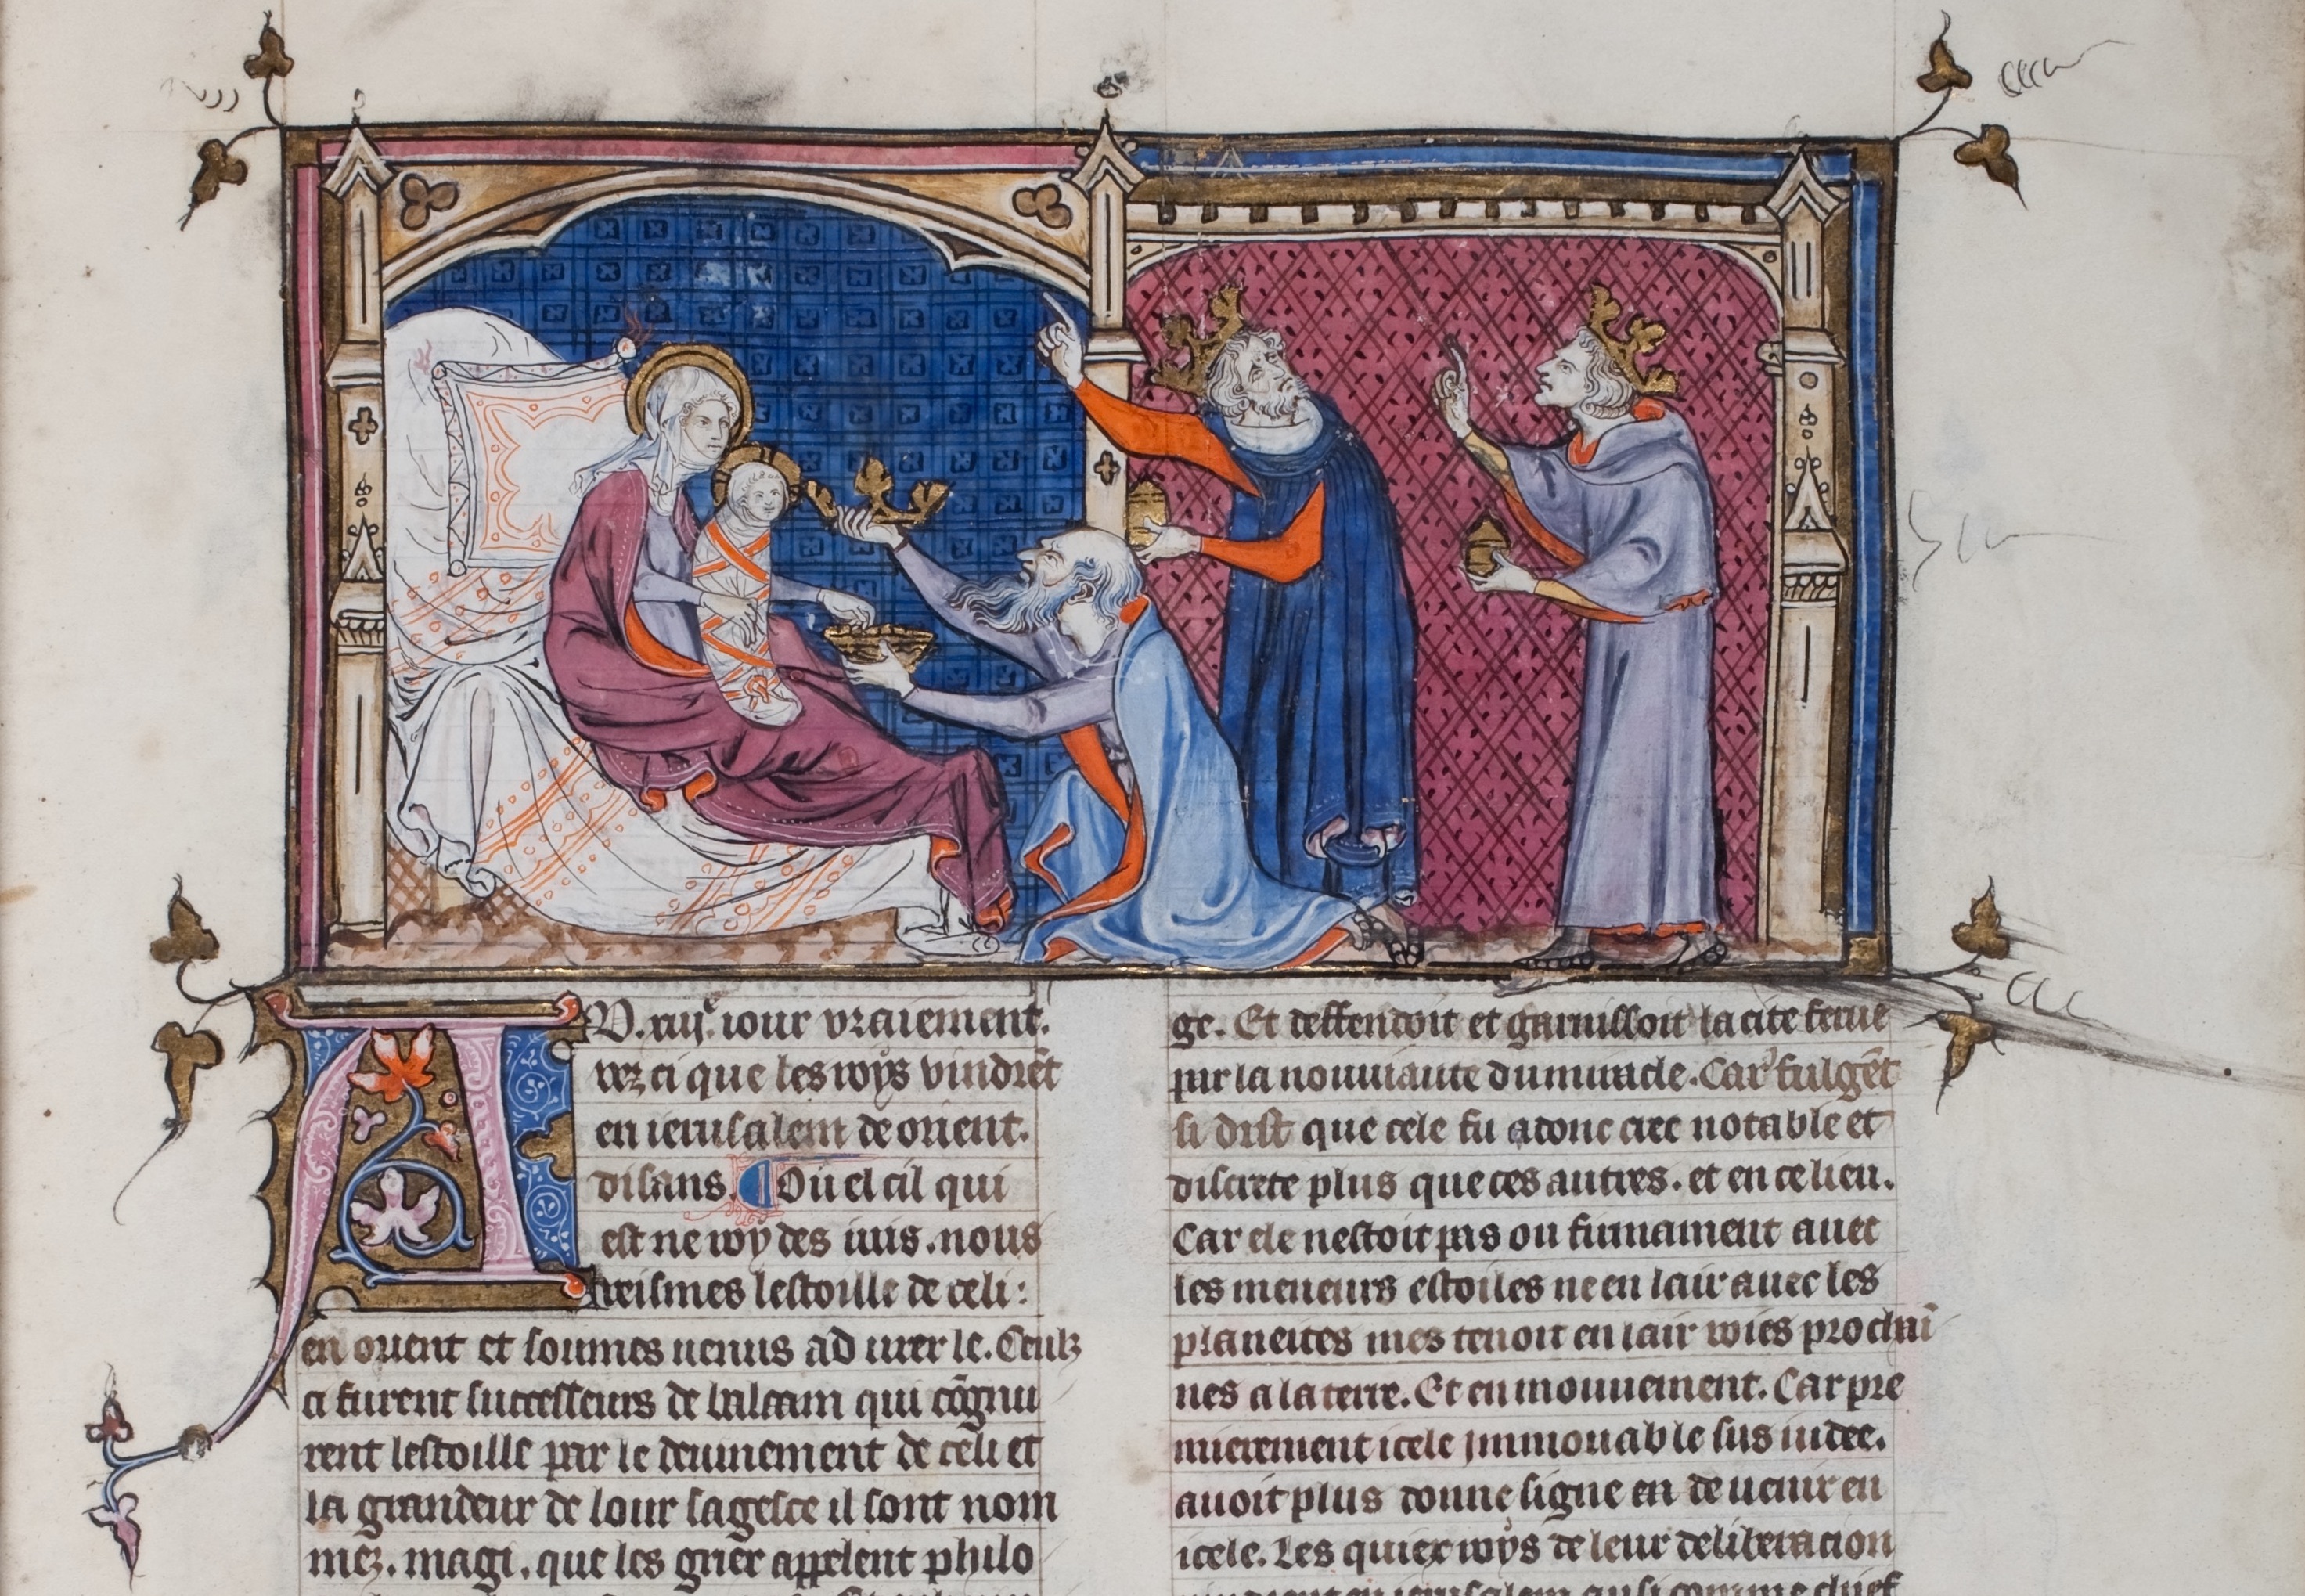 AU .xiij.e iour vraiement.
vez ci que les roys vindrēt
en ierusalem de orient.
disans. Ou el cil qui
est ne roy des iuis. nous
veismes lestoille de celi:
en orient et soumes uenus ad urer le. Ceulz
ci furent successeurs de balaam qui cōgnu
rent lestoille par le deuinement de celi et
la grandeur de lour sagesce il sont nom
mez. magi. que les griex appelent philo
ge. Et deffendoit et garnissoit la cite ferue
par la nouuiaute du miracle. Car fulgēt
si dist que cele fu adonc arc notable et
discrete plus que ces autres. et en ce lieu.
Car ele nestoit pas ou firmament auec
les meneurs estoiles ne en lair auec les
planeites mes tenoit en lair voies prochai
nes a la terre. Et en mouuement. Car pre
mierement icele jmmouable sus iudee.
auoit plus donne signe en de uenir en
icele. Les quiex roys de leur deliberacion
vindrent en ierusalem ausi comme chief